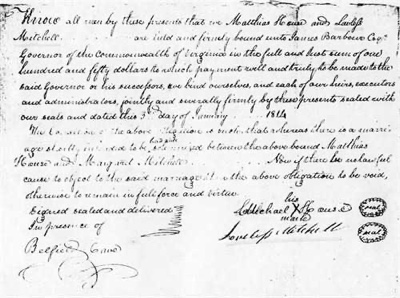 Know all men by these presents that we Matthias House and Loveless
Mitchell are held and firmly bound unto James Barbour Esqr
Governor of the Commonwealth of Virginia in the full and just sum of one
hundred and fifty dollars to which payment well and truly to be made to the
said Governor or his successors, we bind ourselves, and each of our heirs, executors
and administrators, jointly and severally firmly by these presents sealed with
our seals and dated this 3d day of January 1814
The Condition of the above Obligation is such, that whereas there is a marri-
age shortly intended to be had and solemnized between the above bound Matthias
House and Margaret Mitchell Now if there be no lawful
cause to object to the said marriage then the above obligation to be void,
otherwise to remain in full force and virtue
Signed sealed and delivered
in presence of
his
Michael X House seal
mark
Loveless Mitchell seal